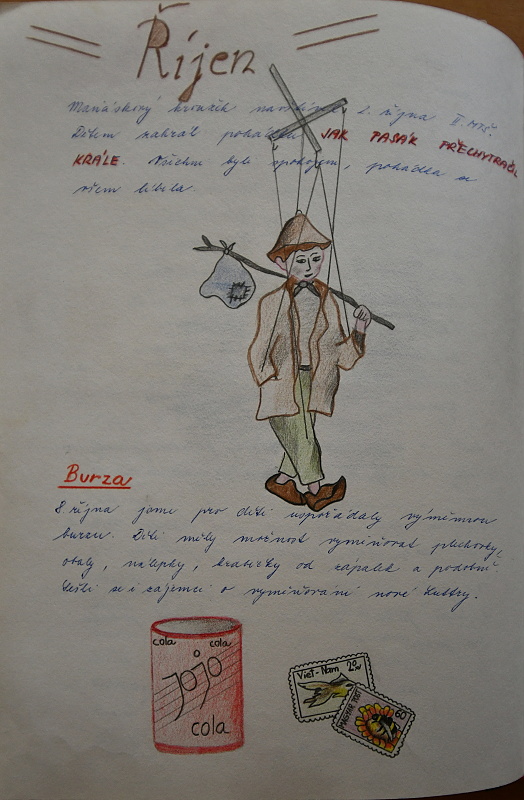 Říjen
Maňáskový kroužek navštívil 2. října II. MŠ.
Dětem zahrál pohádku JAK PASÁK PŘECHYTRAČIL
KRÁLE. Všichni byli spokojeni, pohádka se
všem líbila.
Burza
8. října jsme pro děti uspořádaly výměnnou
burzu. Děti měly možnost vyměňovat plechovky,
obaly, nálepky, krabičky od zápalek a podobně.
Našli se i zájemci o vyměňování nové
cola cola
jojo
cola
Viet-Nam 20
MAGYAR POSTA 60